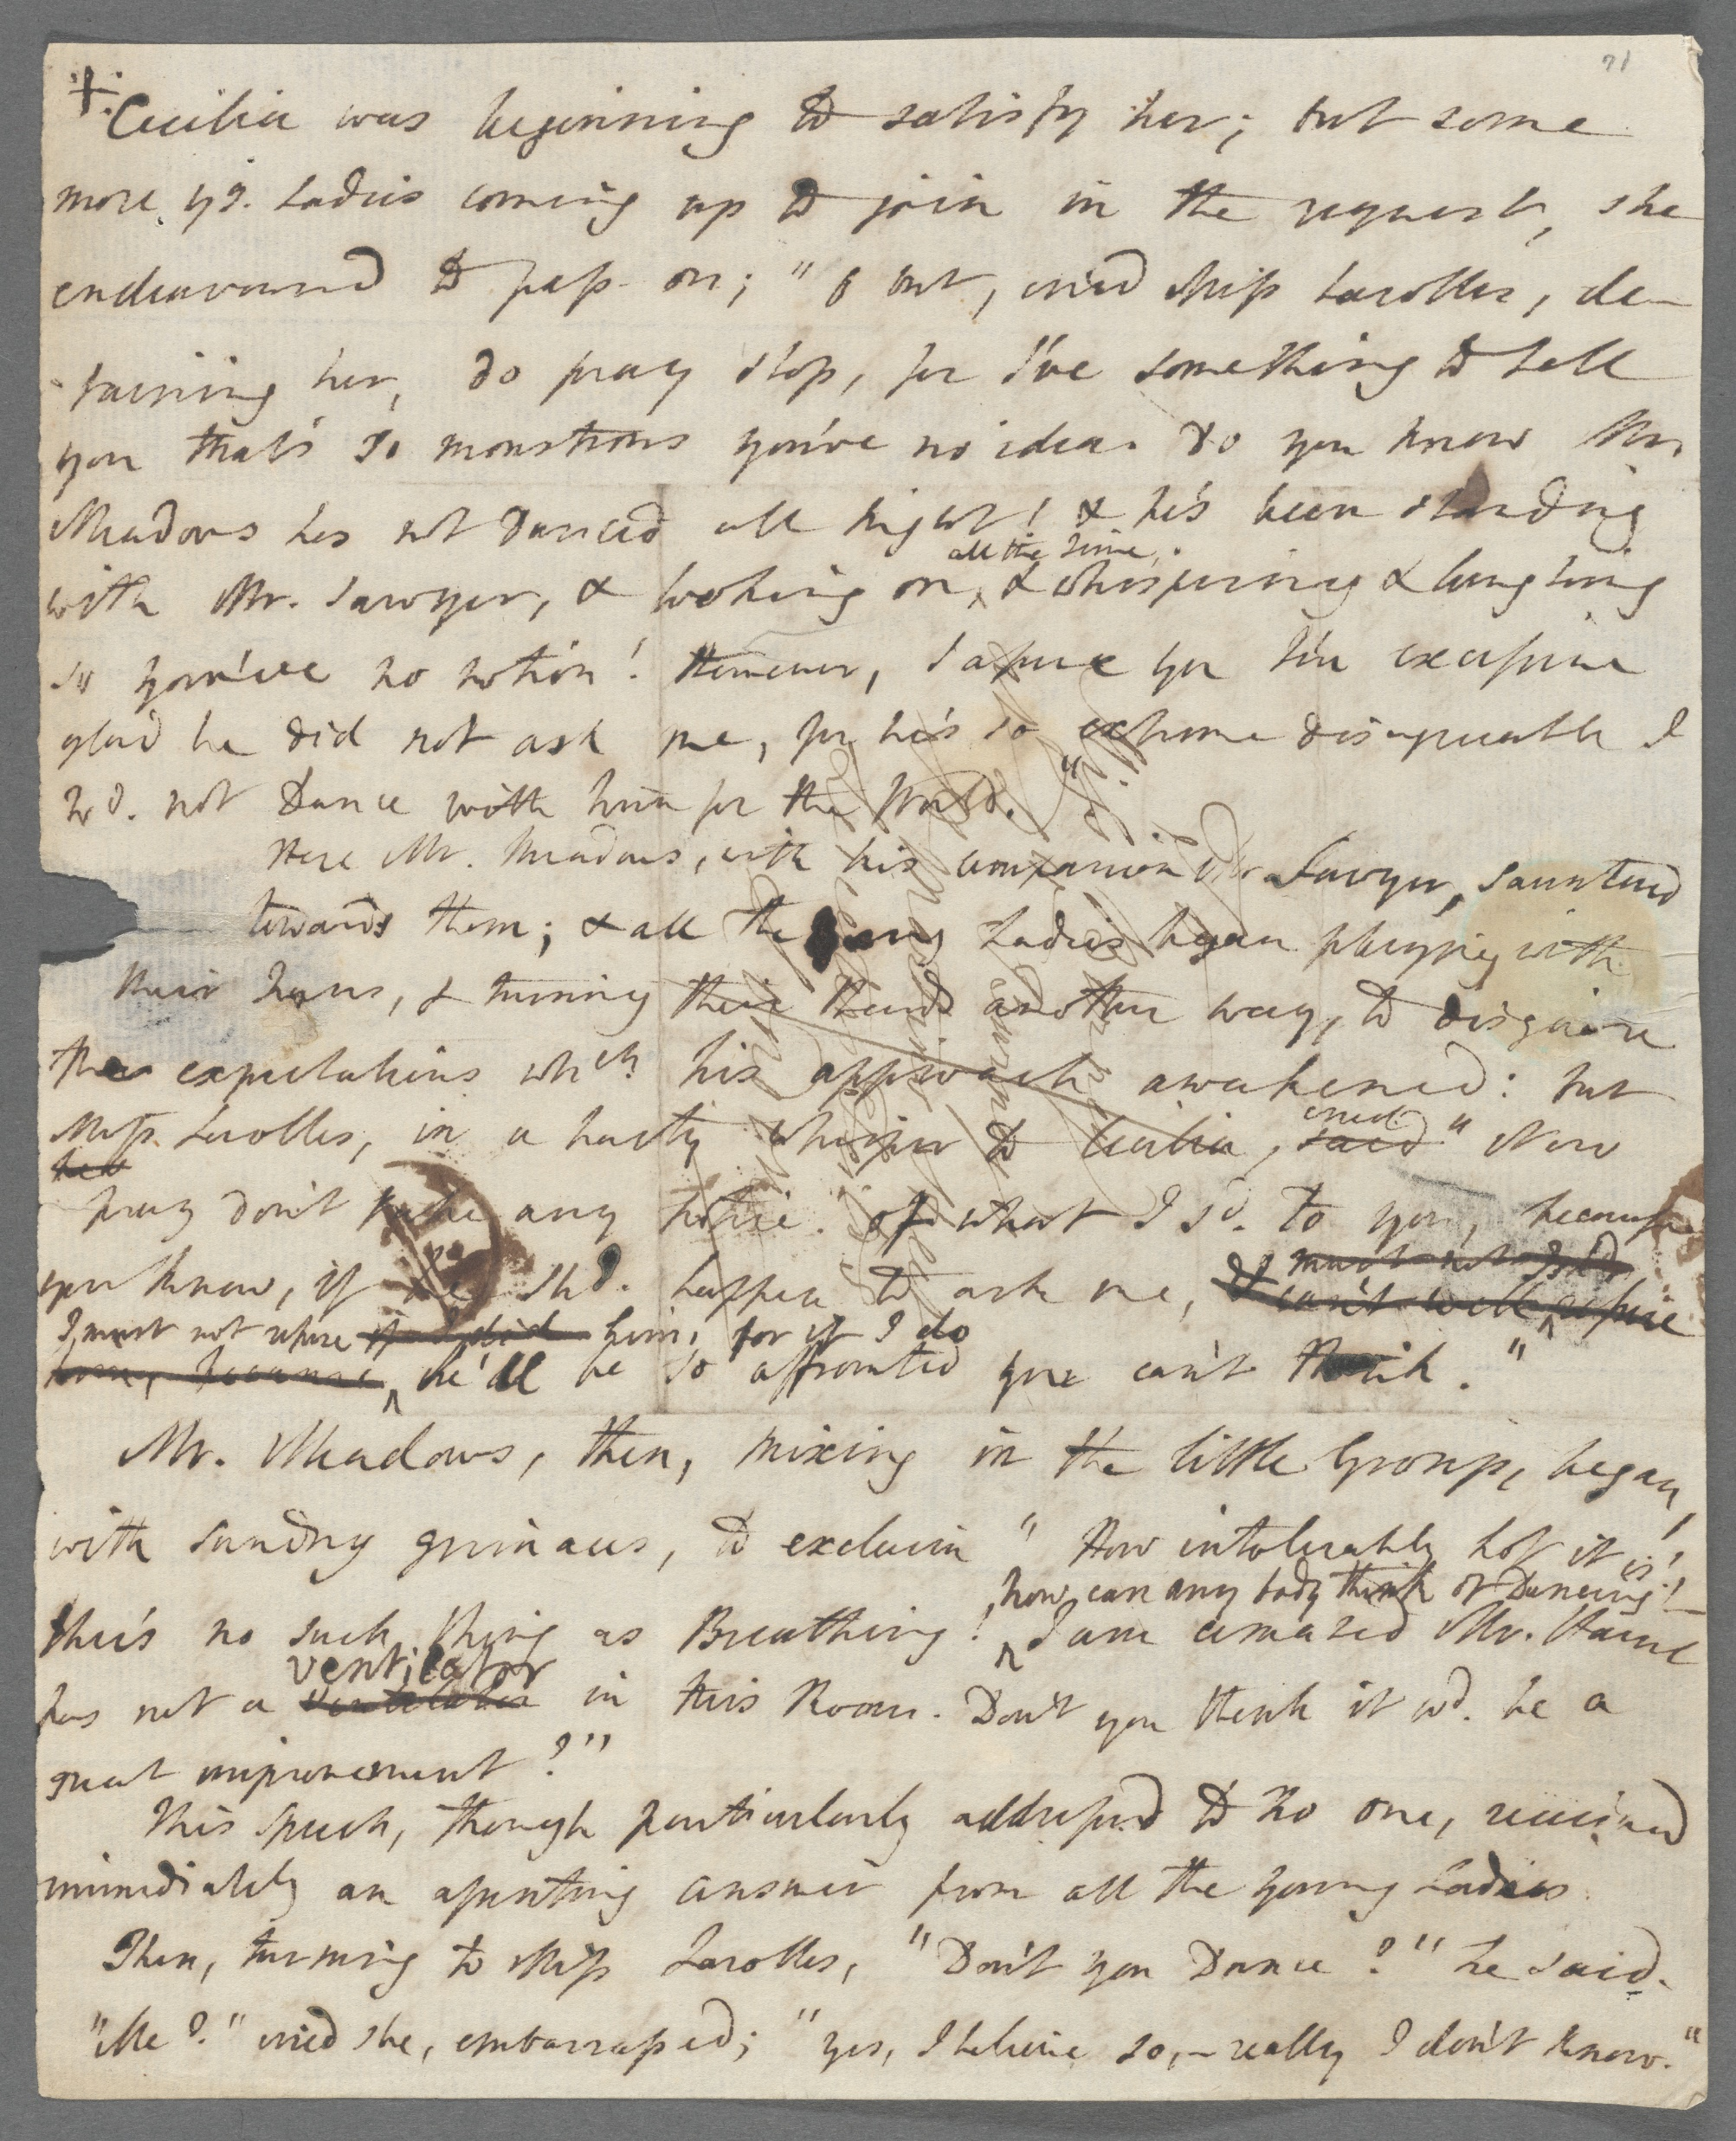 71
+ Cecilia was beginning to satisfy her; but some
more yg. Ladies coming up to join in the request, she
endeavoured to pass on; "O but, cried Miss Larolles, de-
-taining her, do pray stop, for I've something to tell
you that's so monstrous you've no idea. Do you know Mr.
Meadows has not Danced all Night! & he's been standing
with Mr. Sawyer, & looking on all the time, & whispering & laughing
so you've no notion! However, I assure you I'm excessive
glad he did not ask me, for he's so extreme disagreeable I
wd. not Dance with him for the World."
Here Mr. Meadows, with his companion Mr. Sawyer, sauntered
towards them; & all the young Ladies began playing with
their Fans, & turning their Heads another way, to disguise
the expectations which his approach awakened: but
Miss Larolles, in a hasty whisper to Cecilia, said cried "Now
pray don't take any notice of what I sd. to you, because
you know, if he shd. happen to ask me, I can't well refuse
I must not refuse if I did him, for if I do
him, because he'll be so affronted you can't think."
Mr. Meadows, then, mixing in the little Group, began,
with sundry grimaces, to exclaim "How intolerably hot it is!
there's no such thing as Breathing! how can any body think of Dancing! – I am amazed Mr. Harrel
has not a ventilator in this Room. Don't you think it wd. be a
great improvement?"
This speech, though particularly addressed to no one, received
immediately an assenting answer from all the young Ladies.
Then, turning to Miss Larolles, "Don't you Dance?" he said.
"Me?" cried she, embarrassed; "yes, I believe so, – really I don't know."